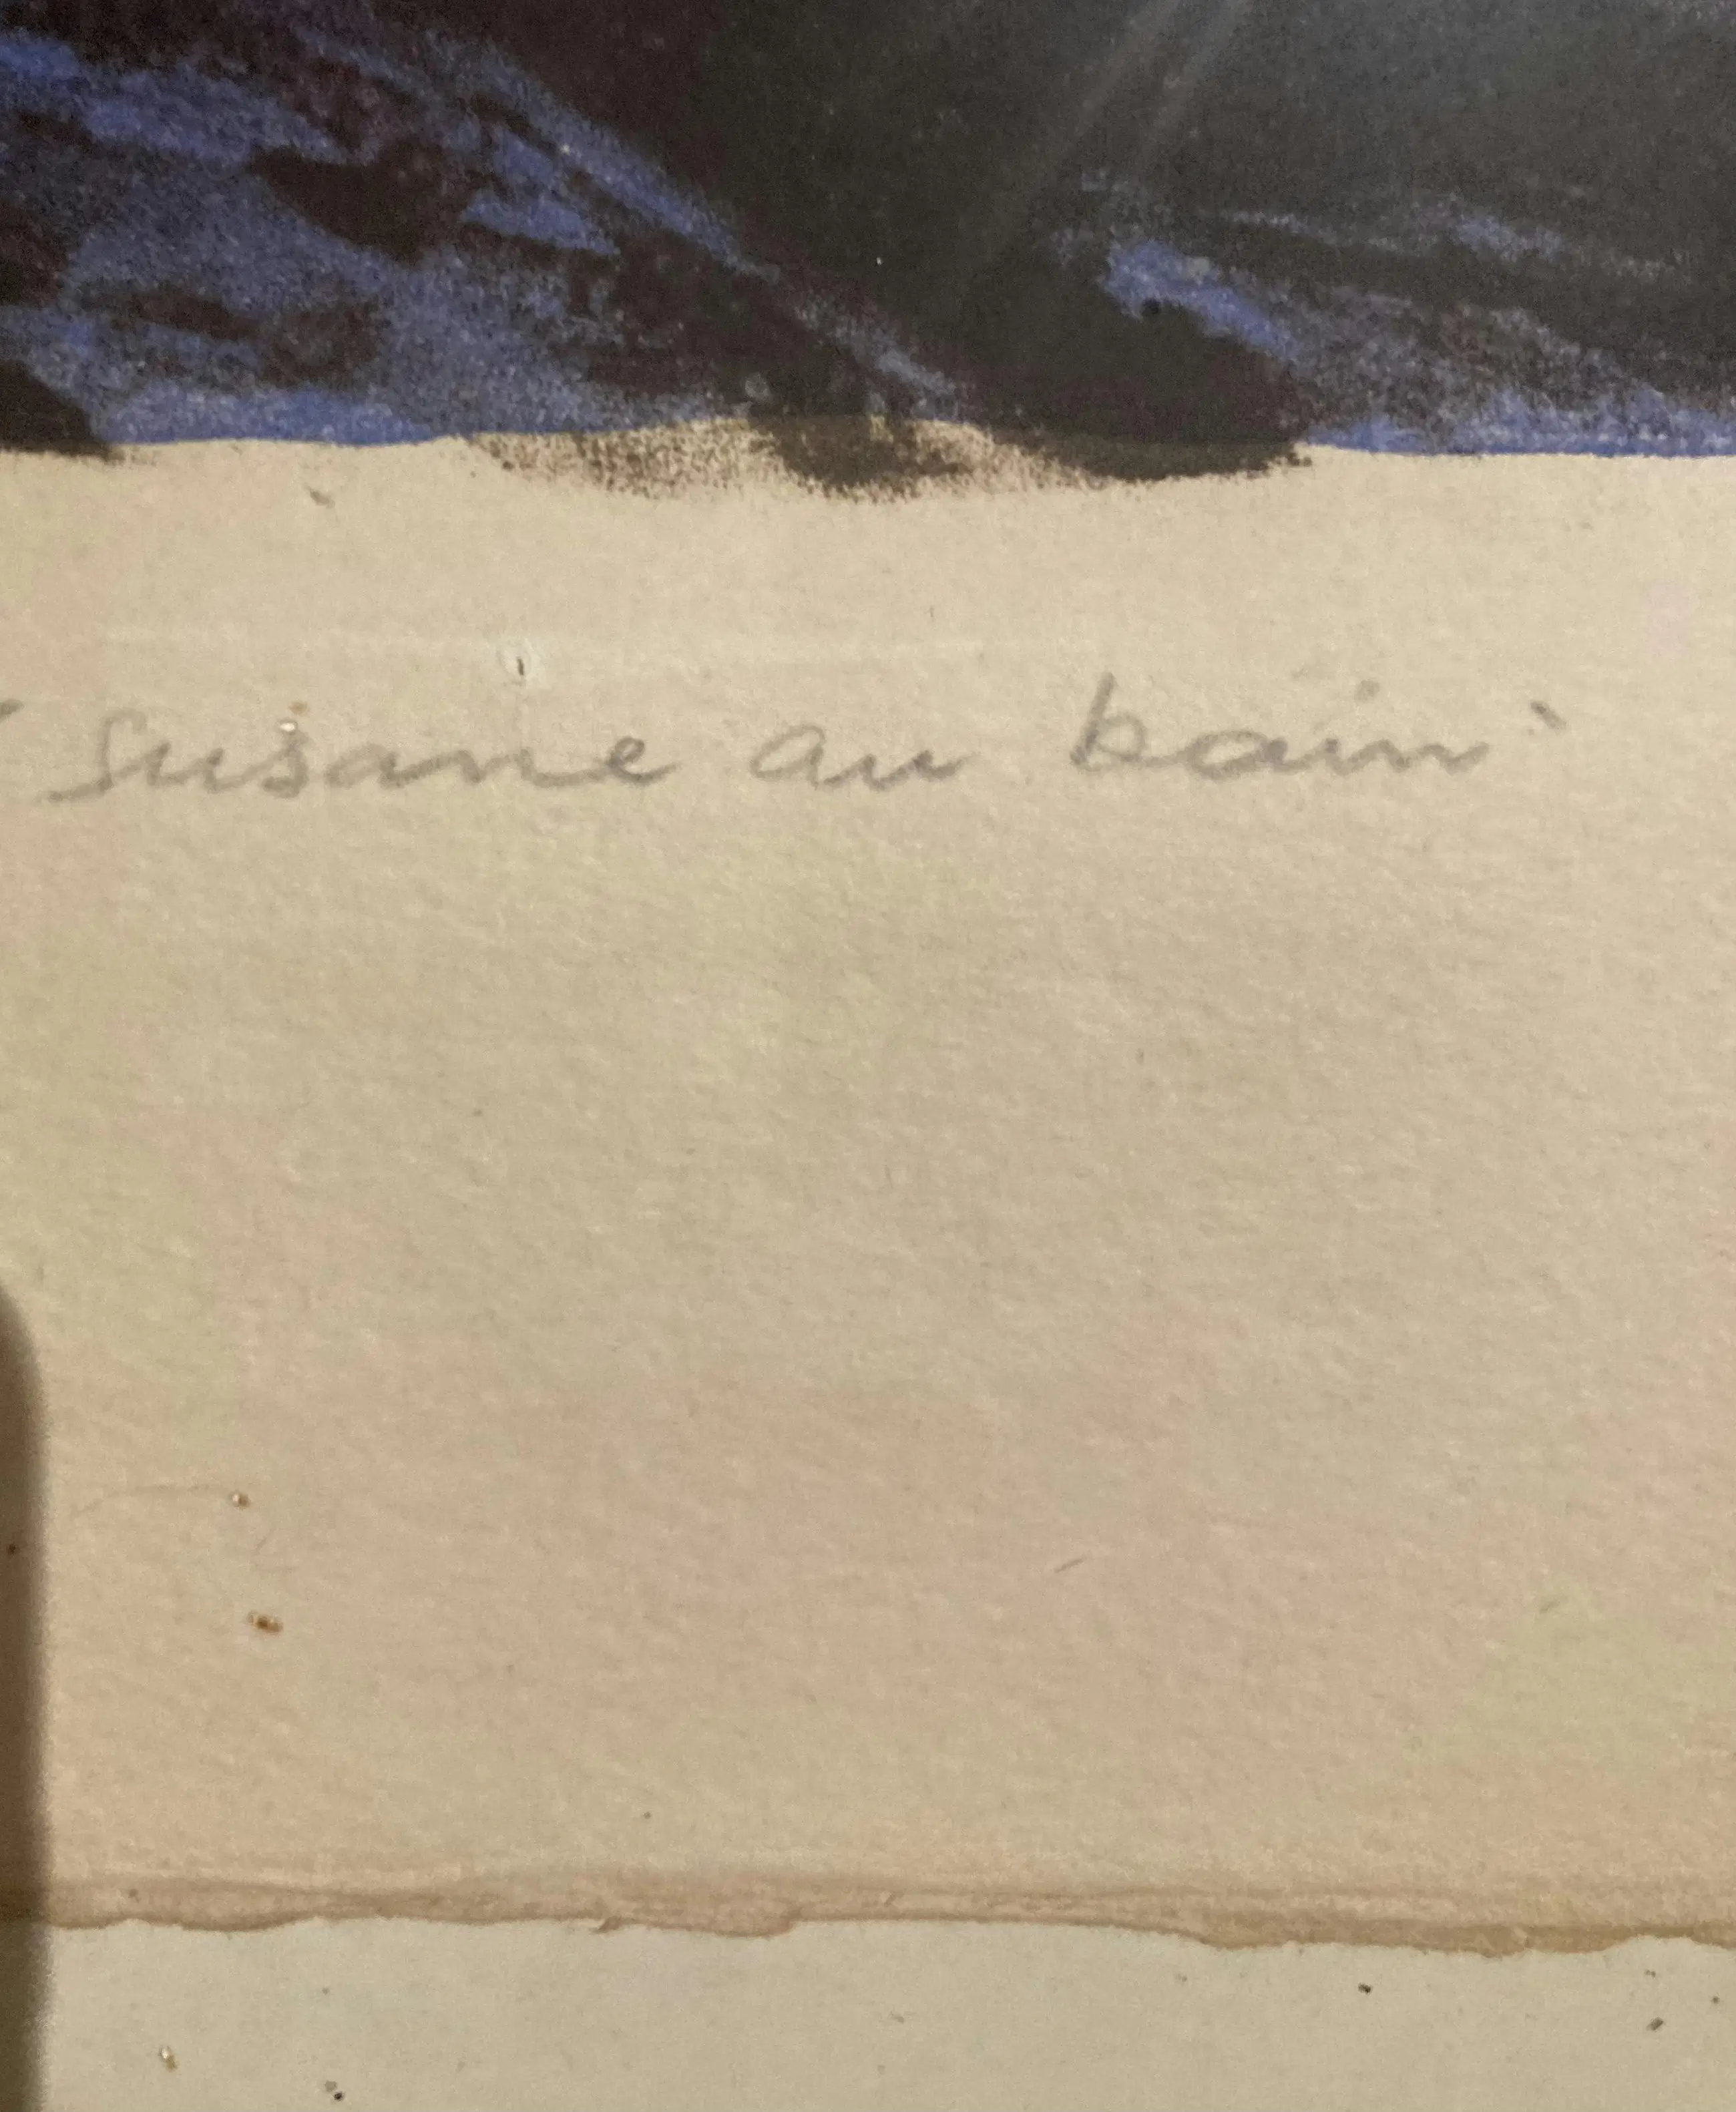 "susane au bain"